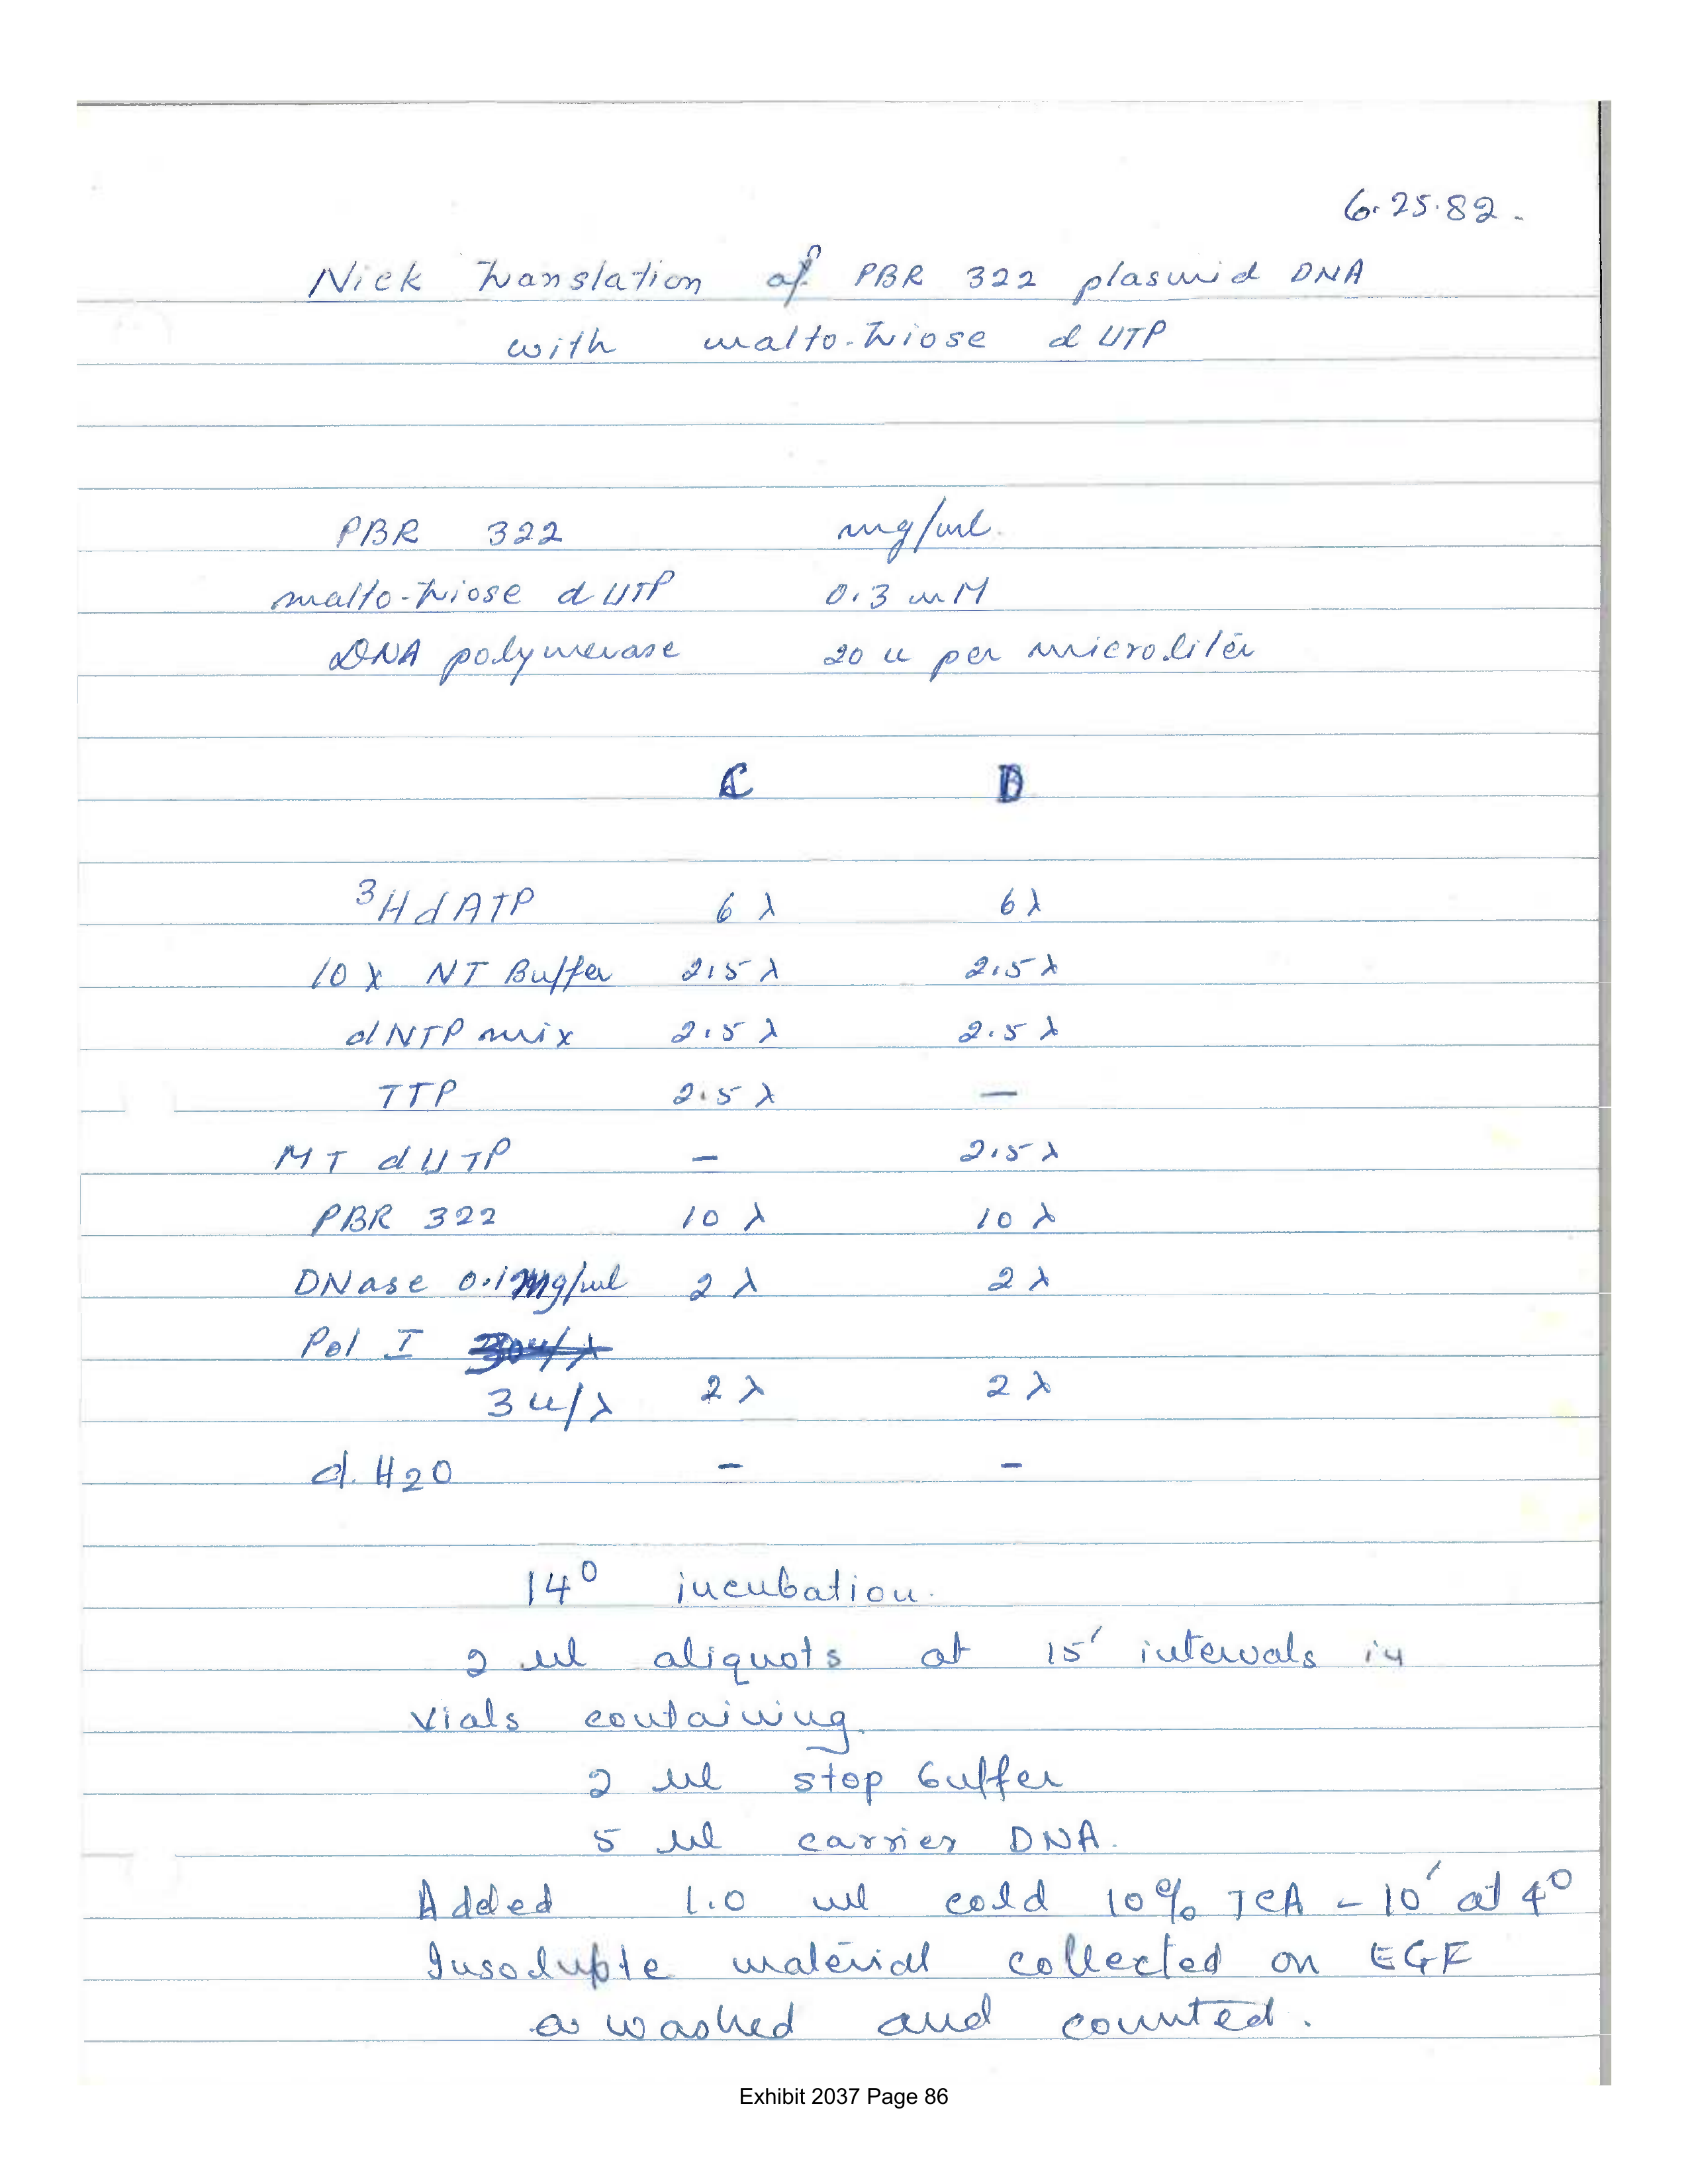 6.25.82.
Nick Translation of PBR 322 plasmid DNA
with malto-triose dUTP
PBR 322 mg/ml.
malto-triose dUTP 0.3 mM
DNA polymerase 20 u per microliter
C D
3H dATP 6 λ 6 λ
10 X NT Buffer 2.5 λ 2.5 λ
dNTP mix 2.5 λ 2.5 λ
TTP 2.5 λ —
MT dUTP — 2.5 λ
PBR 322 10 λ 10 λ
DNase 0.1 mg/ml 2 λ 2 λ
Pol I 30u/λ
3 u/λ 2 λ 2 λ
d. H2O — —
14° incubation.
2 ul aliquots at 15' intervals in
vials containing
2 ul stop buffer
5 ul carrier DNA.
Added 1.0 ml cold 10% TCA - 10' at 4°
Insoluble material collected on
washed and counted.
Exhibit 2037 Page 86